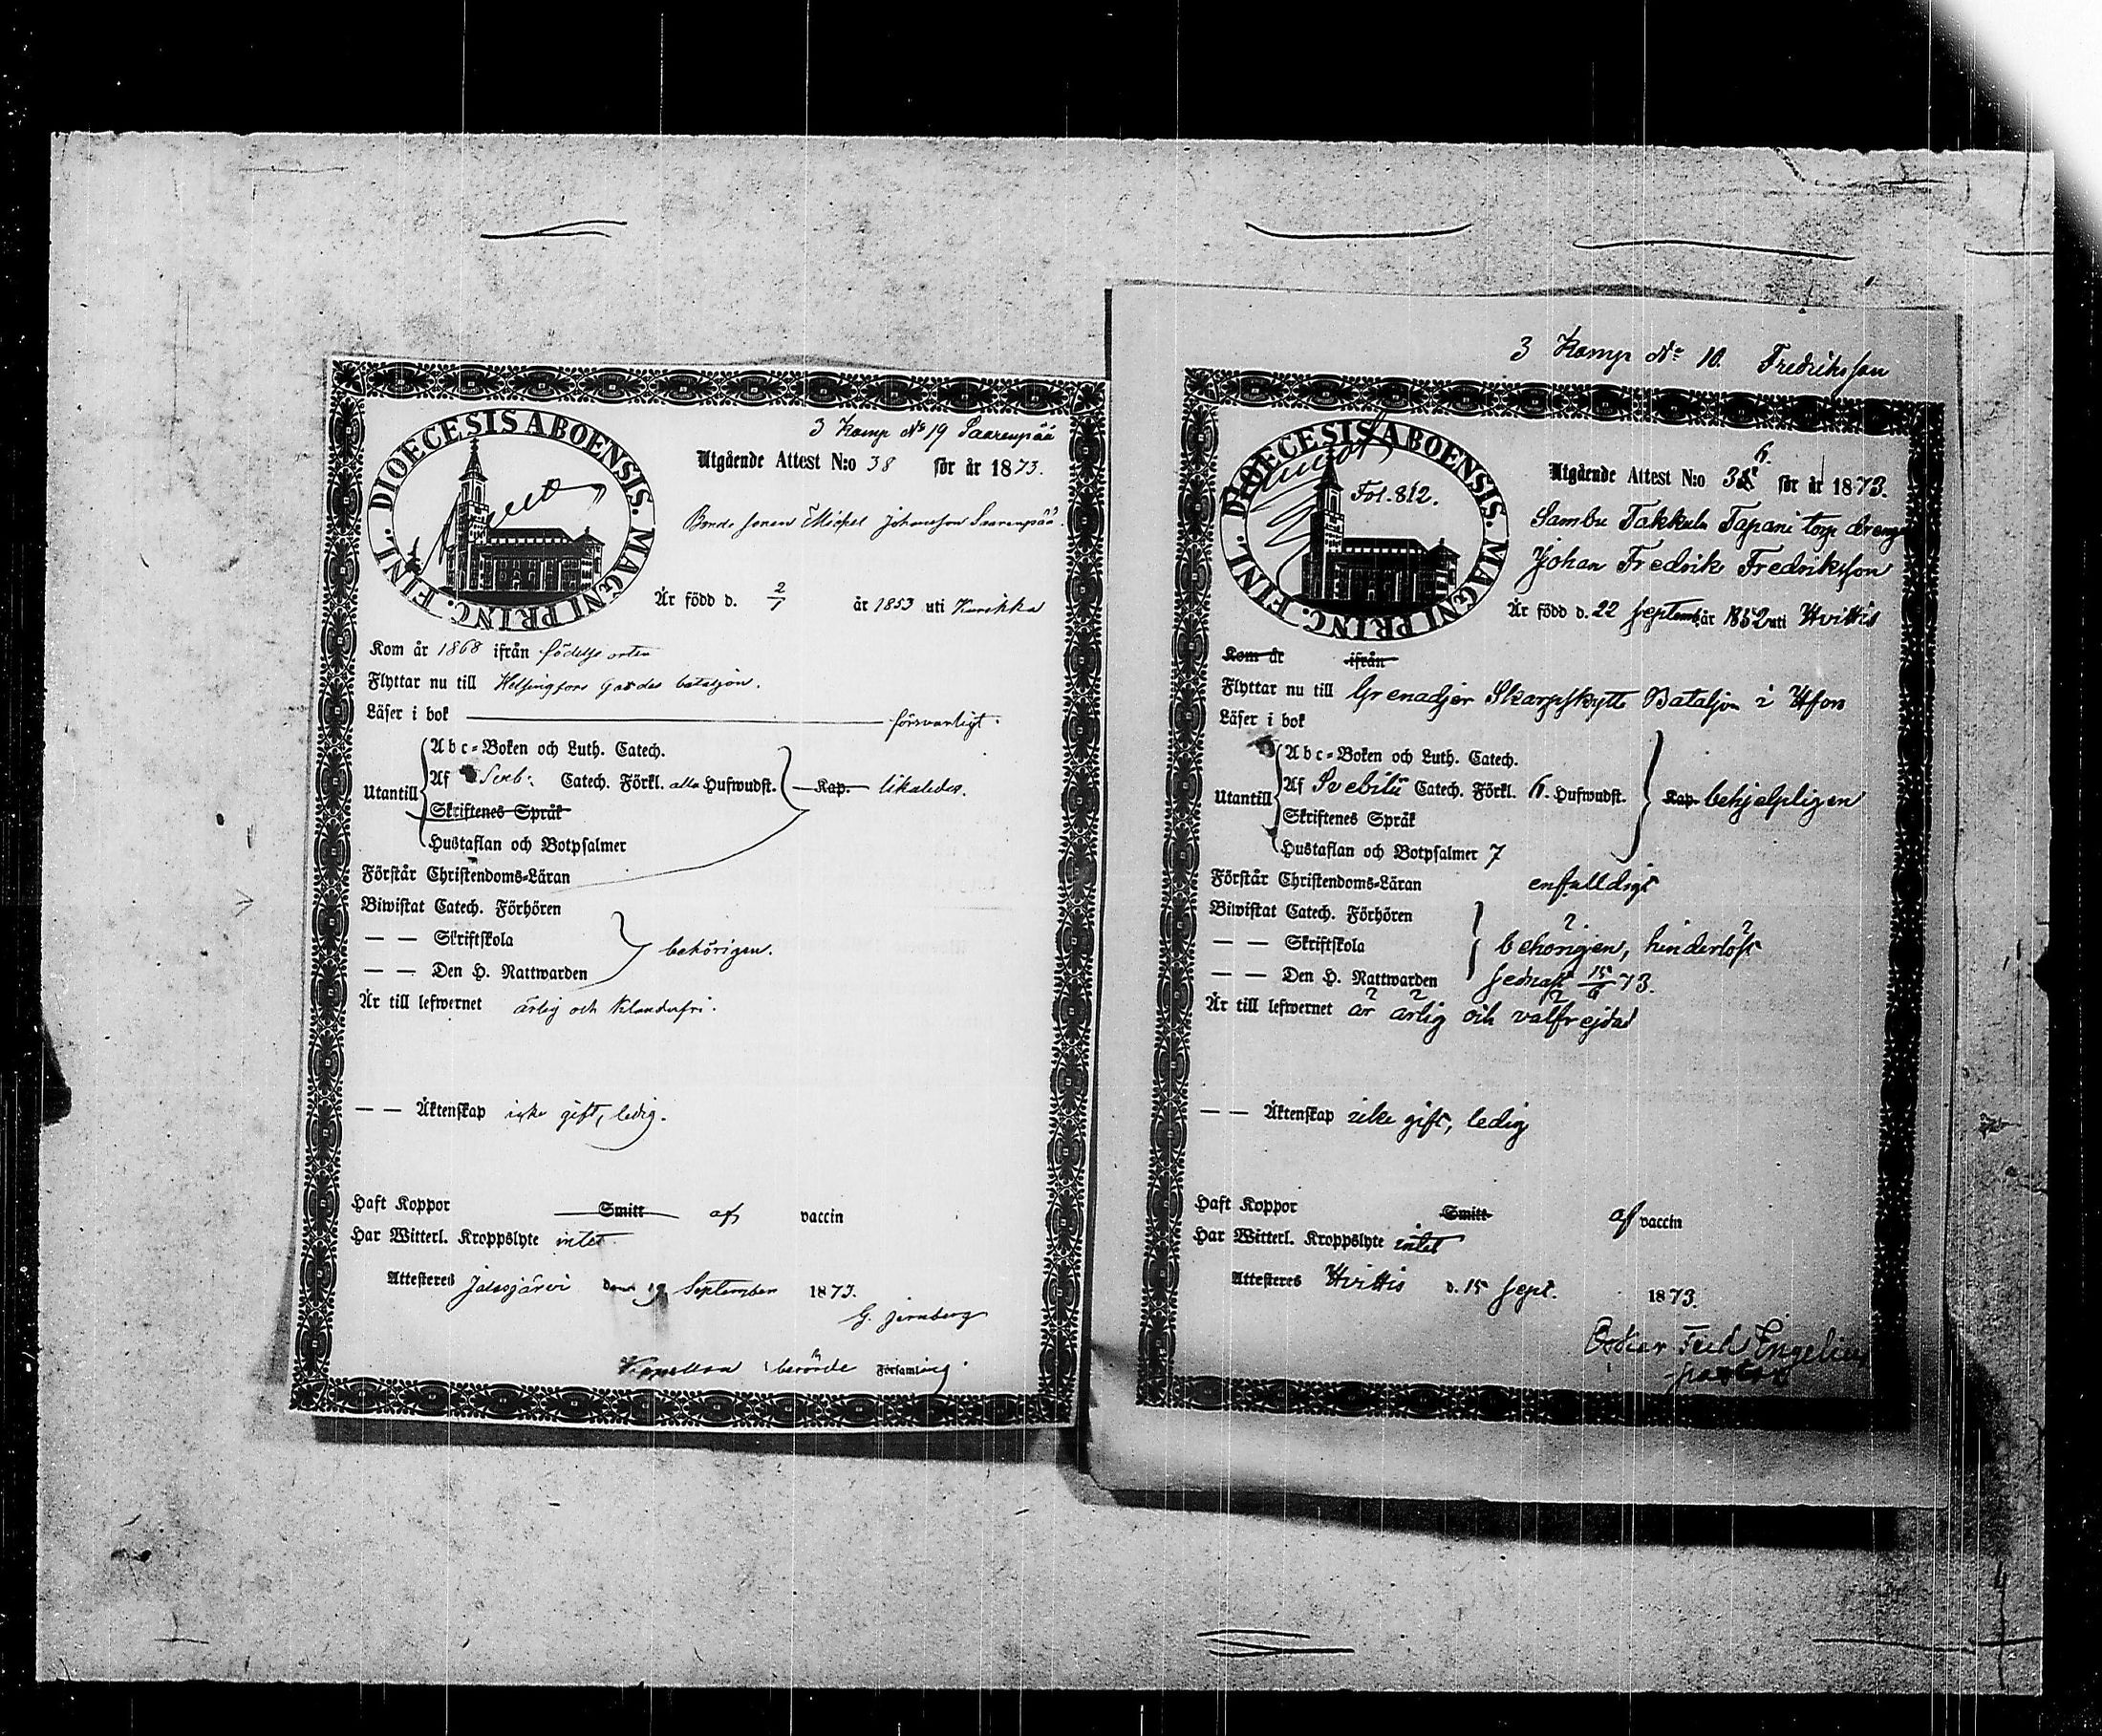 3 Komp No 19 Saarenpää
DIOECESIS ABOENSIS. MAGNI PRINC. FINL.
Utgående Attest N:o 38 för år 1873.
Bonde sonen Michel Johansson Saarenpää.
Är född d. 2/1 år 1853 uti Kurikka
Kom år 1868 ifrån födelse orten
Flyttar nu till Helsingfors Gardes bataljon.
Läser i bok försvarligt.
Utantill
Abc-Boken och Luth. Catech.
Af Sveb: Catech. Förkl. alla Hufwudst. Kap. likaledes.
Skriftenes Språk
Hustaflan och Botpsalmer
Förstår Christendoms-Läran
Biwistat Catech. Förhören
— — Skriftskola behörigen.
— — Den H. Nattwarden
Är till lefwernet ärlig och klanderfri.
— — Äktenskap icke gift, ledig.
Haft Koppor Smitt af vaccin
Har Witterl. Kroppslyte intet
Attesteres Jalasjärvi den 19 September 1873.
G. Jernberg
i berörde Församling.
3 Komp No 10. Fredriksson
DIOECESIS ABOENSIS. MAGNI PRINC. FINL.
Fol. 812.
Utgående Attest N:o 36 för år 1873.
Sambu Takkula Tapani torp dreng
Johan Fredrik Fredriksson
Är född d. 22 Septemb. år 1852 uti Hvittis
Kom år ifrån
Flyttar nu till Grenadjer Skarpskytte Bataljon i Hfors
Läser i bok
Utantill
Abc-Boken och Luth. Catech.
Af Svebilii Catech. Förkl. 6. Hufwudst. Kap. behjelpligen
Skriftenes Språk
Hustaflan och Botpsalmer 7
Förstår Christendoms-Läran enfalldigt
Biwistat Catech. Förhören
— — Skriftskola behörigen, hinderlöst
— — Den H. Nattwarden sednast 15/6 73.
Är till lefwernet är ärlig och välfrejdad
— — Äktenskap icke gift, ledig
Haft Koppor Smitt af vaccin
Har Witterl. Kroppslyte intet
Attesteres Hvittis d. 15 Sept. 1873.
Oskar Fred. Engelius
pastor